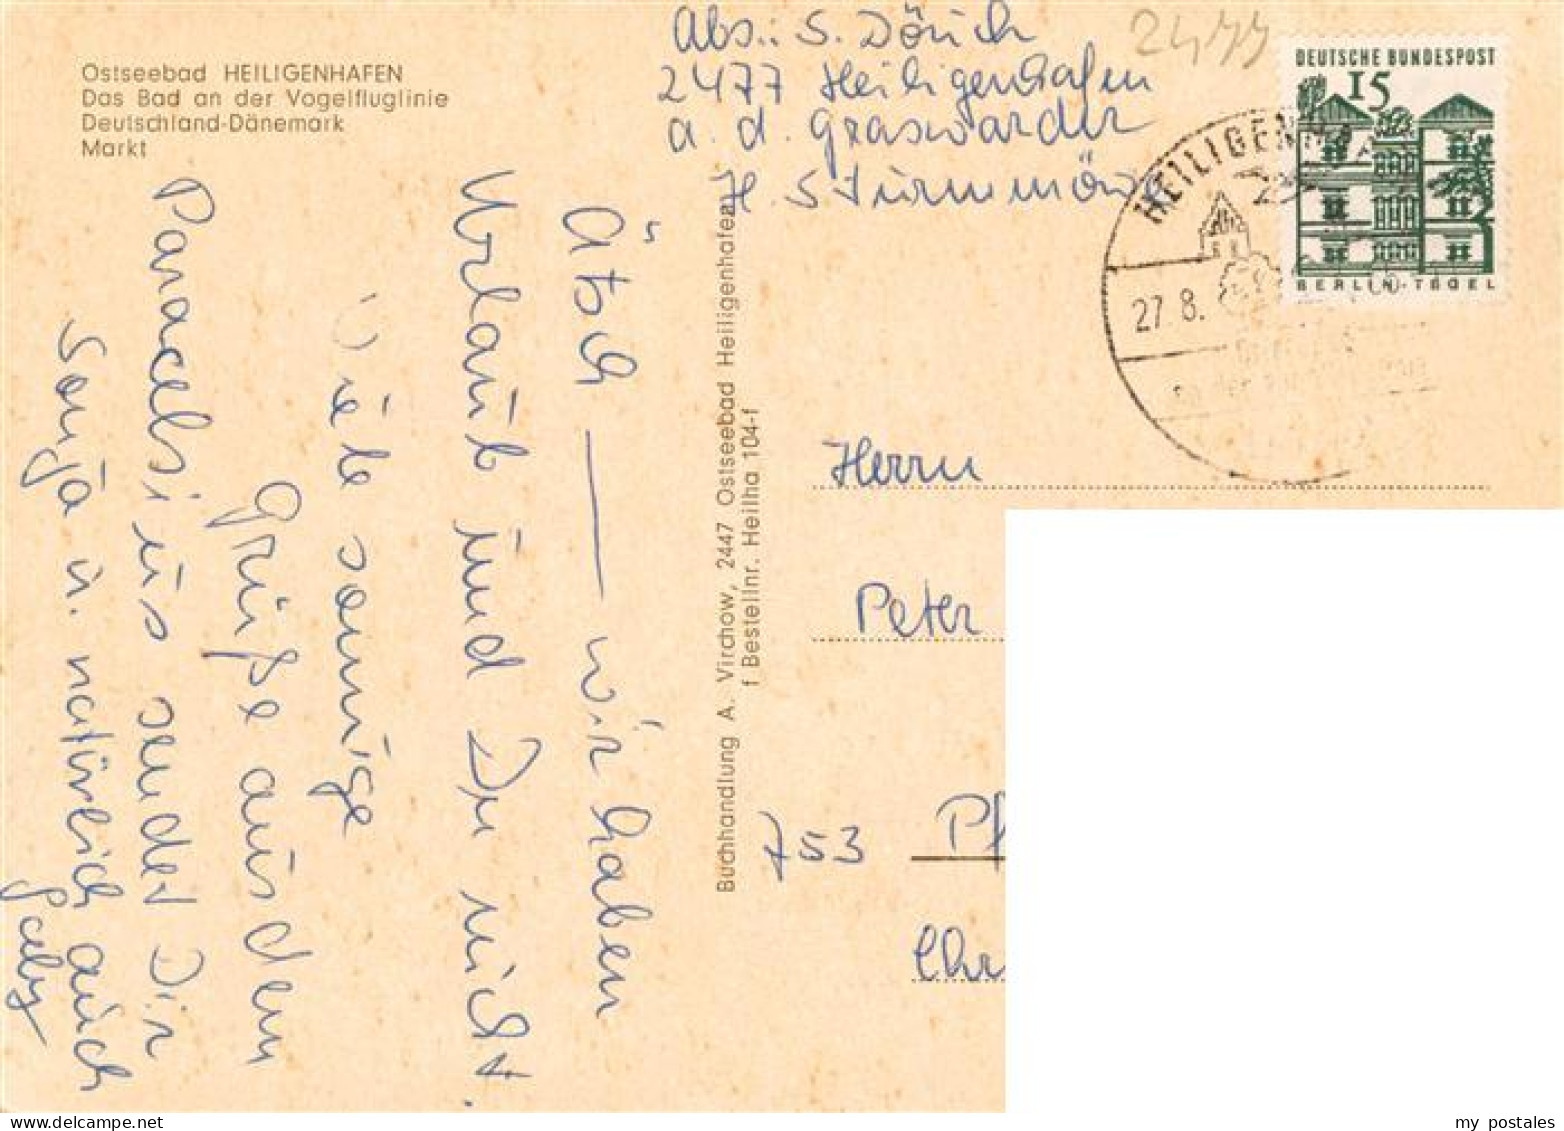 Ostseebad HEILIGENHAFEN
Das Bad an der Vogelfluglinie
Deutschland-Dänemark
Markt
Abs.: S.
2477 Heiligenhafen
a. d. Graswarder
H. Sturmmöwe
2477
DEUTSCHE BUNDESPOST
15
BERLIN-TEGEL
HEILIGENHA
27. 8.
Ätsch — wir haben
Urlaub und Du nicht.
Viele sonnige
Grüße aus dem
Paracelsius sendet Dir
Sonja u. natürlich auch
Gaby
Buchhandlung A. Virchow, 2447 Ostseebad Heiligenhafen
f Bestellnr. Heilha 104-f
Herrn
Peter
753 Pf
Chr
my postales